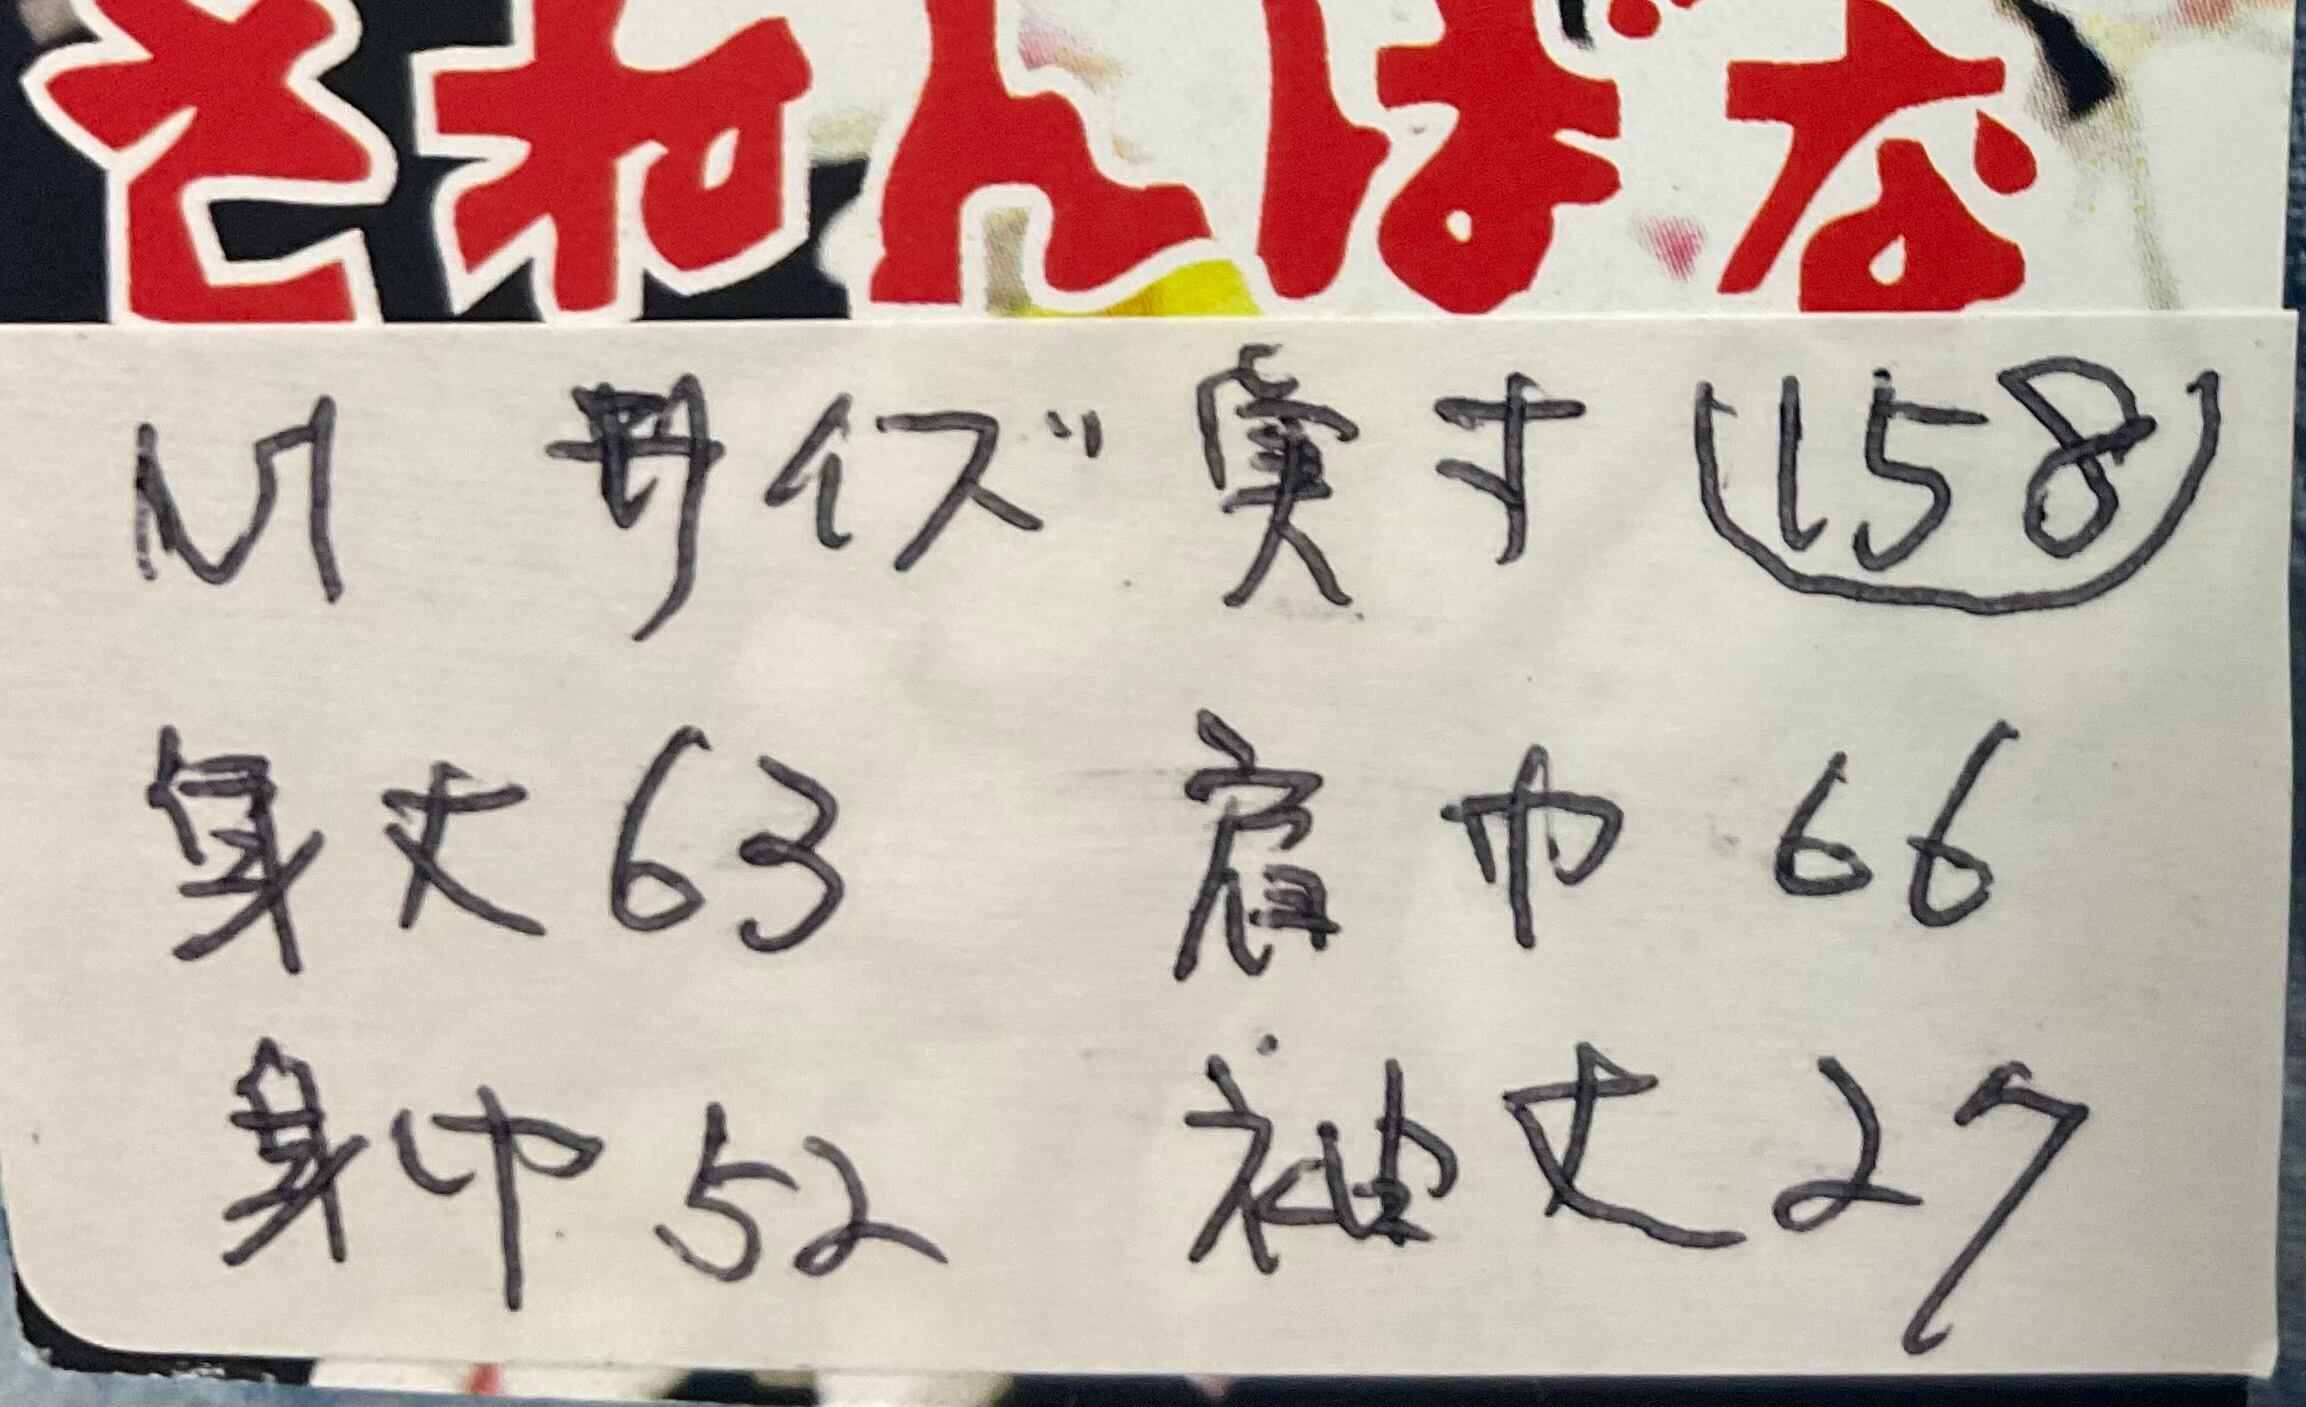 さねんばな
M サイズ 実寸 158
身丈 63 肩巾 66
身巾 52 袖丈 27